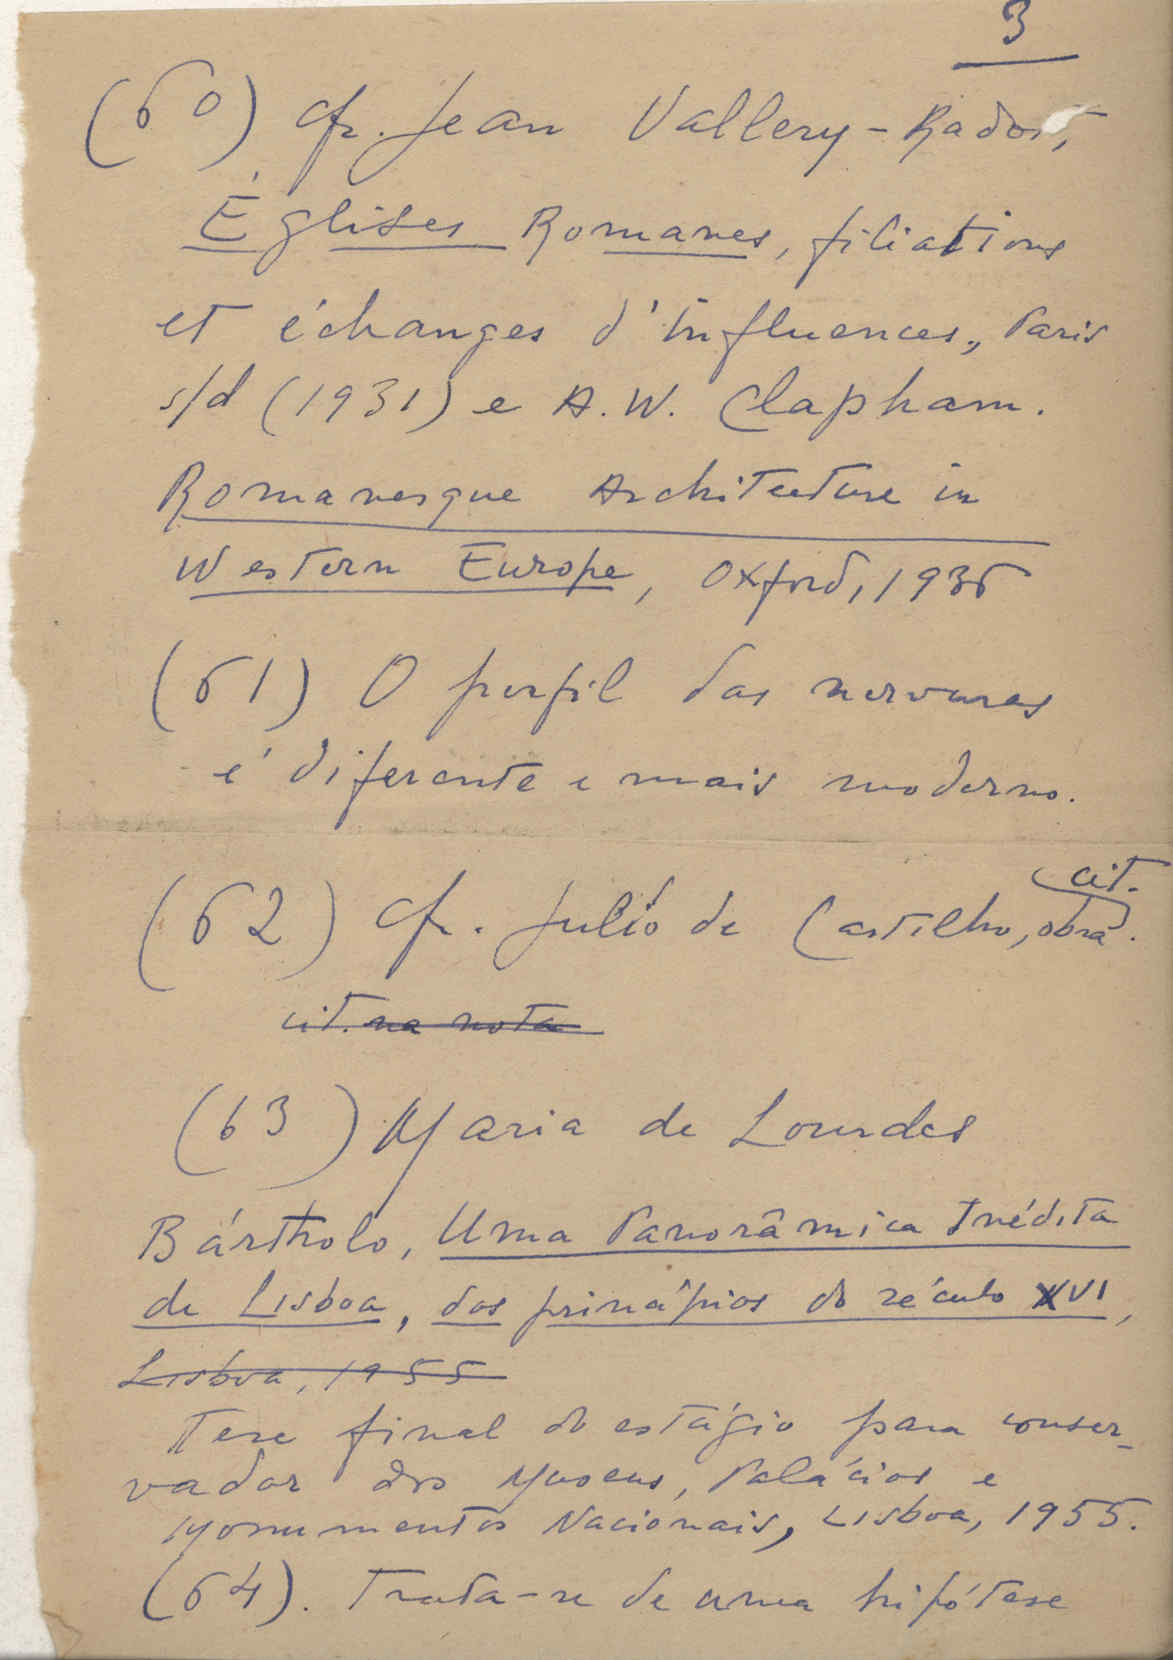 3
(60) Cfr. Jean Vallery-Radot,
Églises Romanes, filiations
et échanges d'influences, Paris
s/d (1931) e A. W. Clapham.
Romanesque Architecture in
Western Europe, Oxford, 1936
(61) O perfil das nervuras
é diferente e mais moderno.
cit.
(62) Cfr. Julió de Castilho, obra.
cit. na nota
(63) Maria de Lourdes
Bártholo, Uma Panorâmica Inédita
de Lisboa, dos princípios do século XVI,
Lisboa, 1955
Tese final do estágio para conser-
vador dos Museus, Palácios e
Monumentos Nacionais, Lisboa, 1955.
(64). Trata-se de uma hipótese